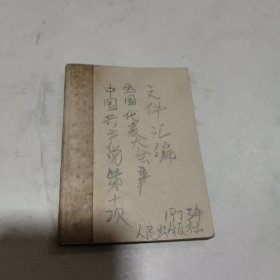 中国共产党第十次
全国代表大会
文件汇编
1973年
人民出版社